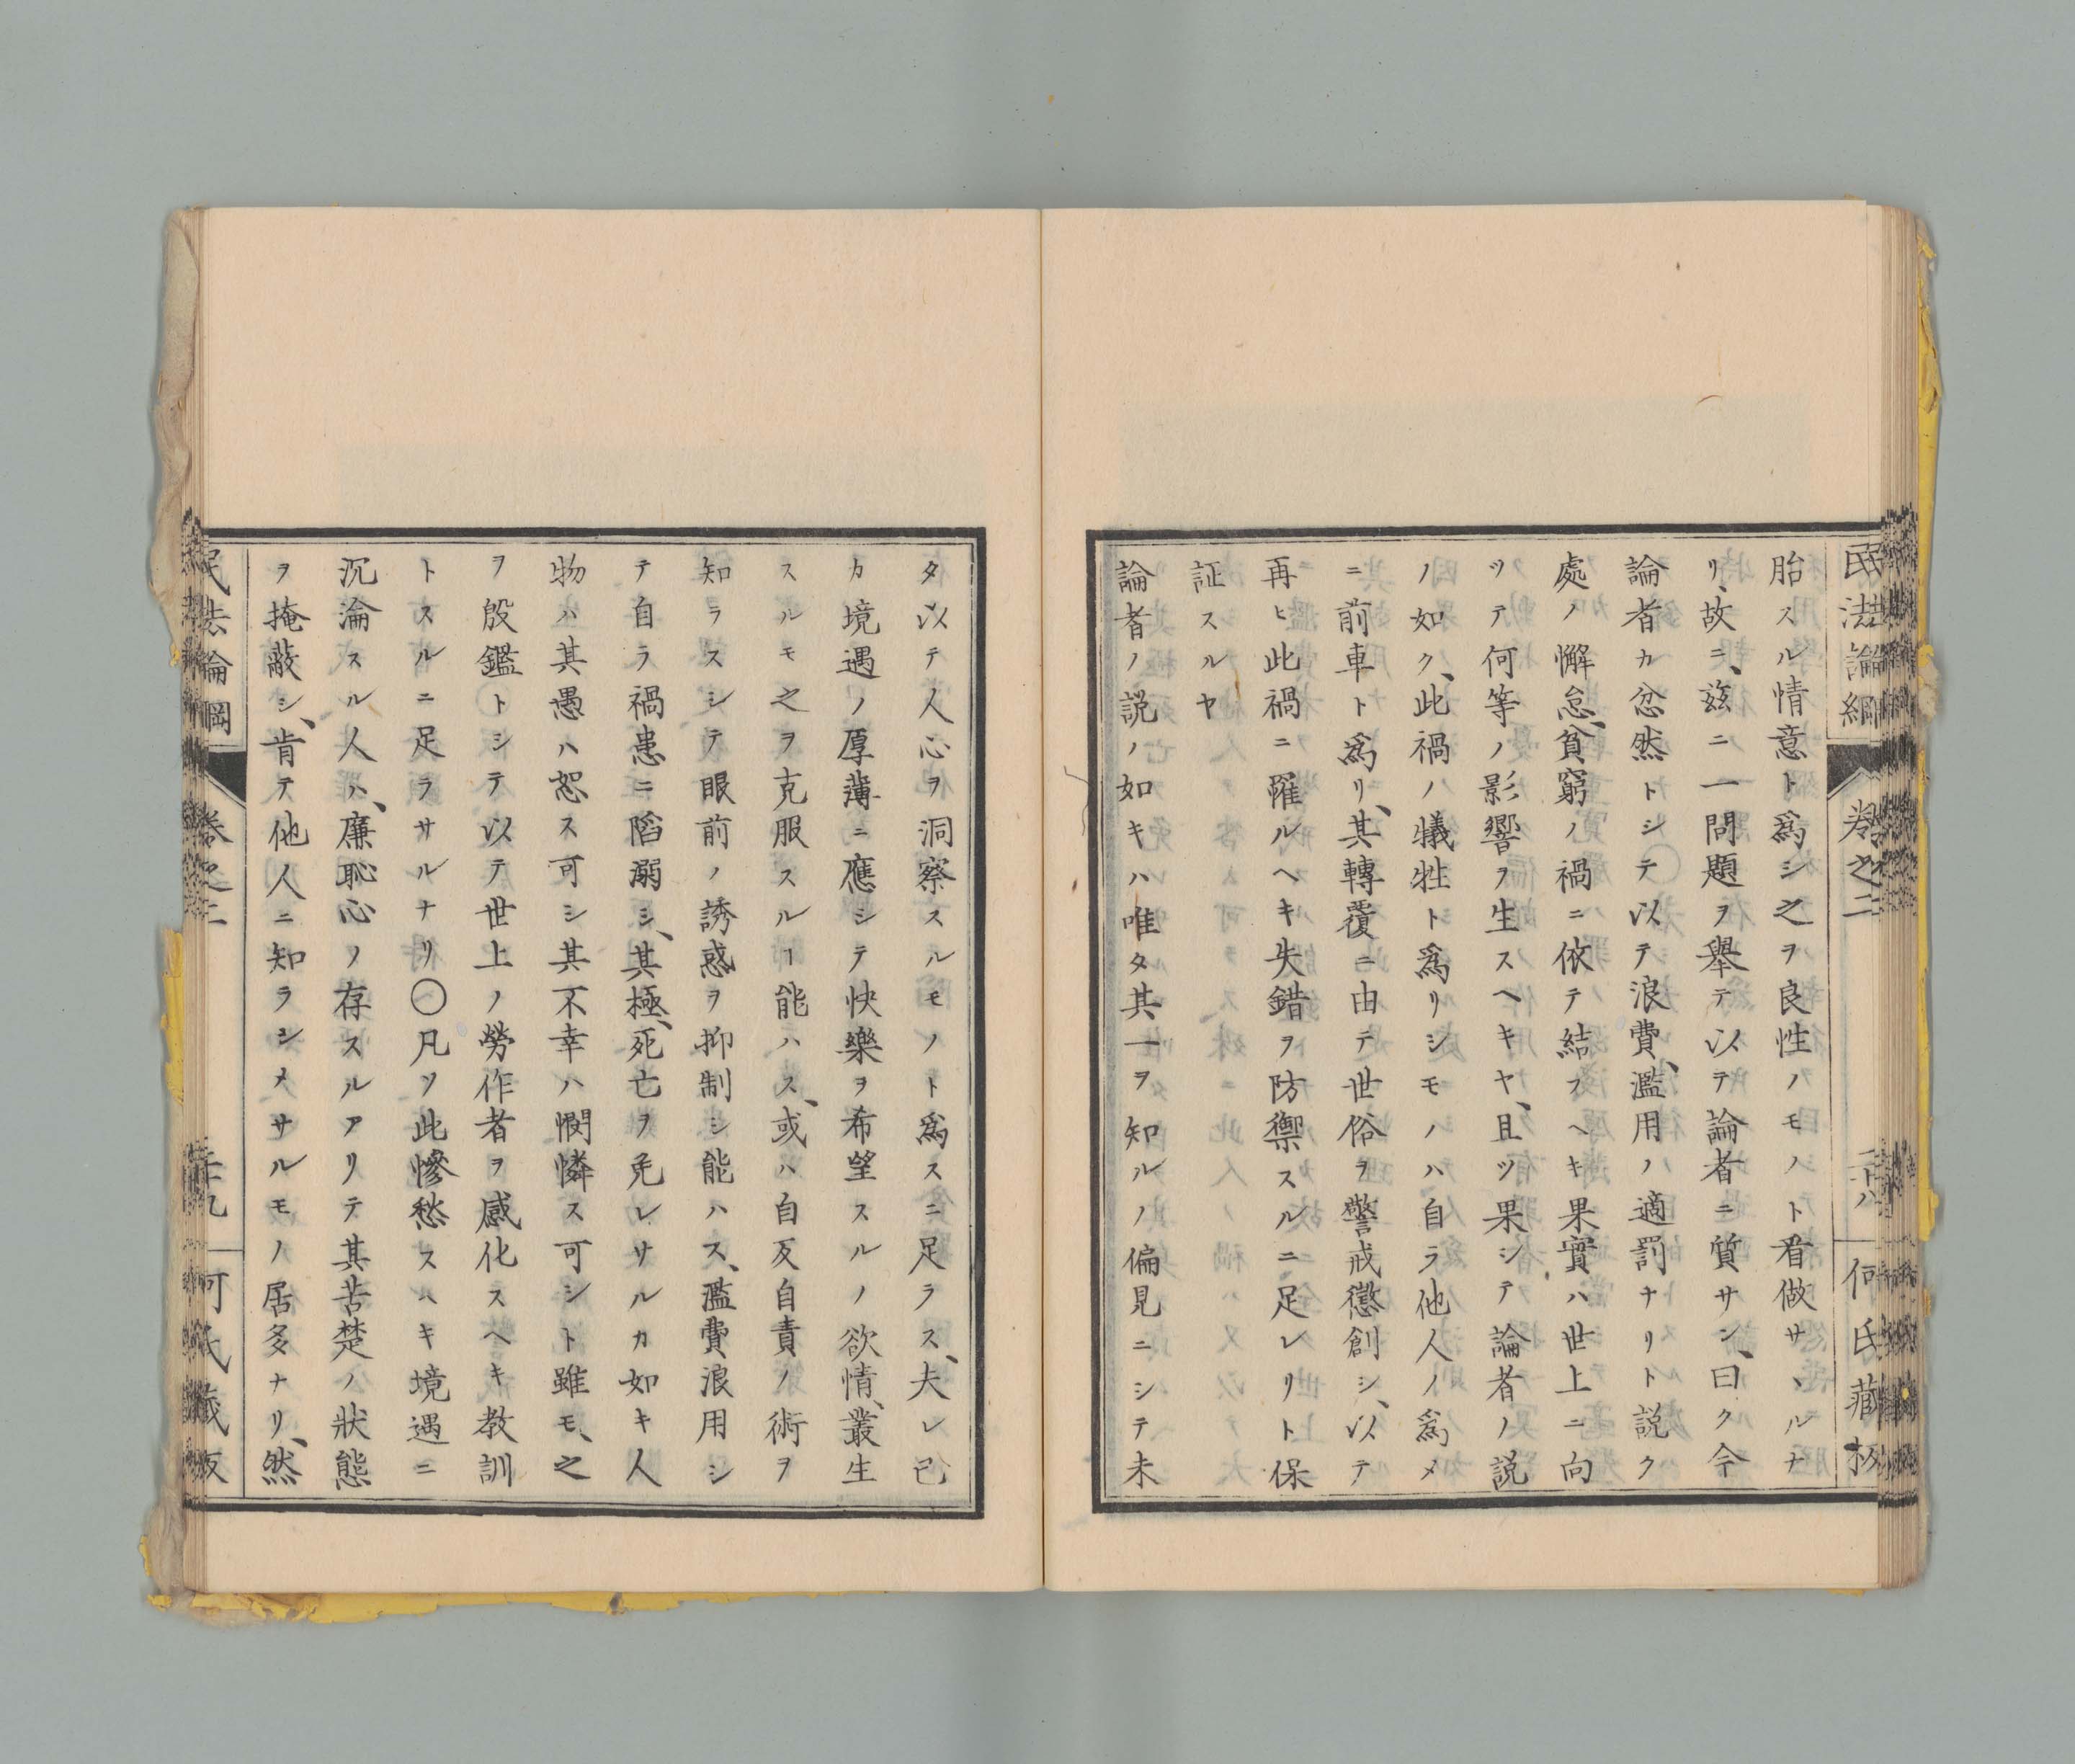 民法論綱 卷之二 二十八 何氏藏板
胎スル情意ト爲シ之ヲ良性ノモノト看做サヽルナ
リ、故ニ、玆ニ一問題ヲ擧テ以テ論者ニ質サン、曰ク今
論者カ忿然トシテ以テ浪費、濫用ノ適罰ナリト説ク
處ノ懈怠、貧窮ノ禍ニ依テ結フヘキ果實ハ世上ニ向
ツテ何等ノ影響ヲ生スヘキヤ、且ツ果シテ論者ノ説
ノ如ク、此禍ノ犠牲ト爲リシモノハ自ラ他人ノ爲メ
ニ前車ト爲リ、其轉覆ニ由テ世俗ヲ警戒懲創シ、以テ
再ヒ此禍ニ罹ルヘキ失錯ヲ防禦スルニ足レリト保
証スルヤ
論者ノ説ノ如キハ唯タ其一ヲ知ルノ偏見ニシテ未
タ以テ人心ヲ洞察スルモノト爲スニ足ラス、夫レ己
カ境遇ノ厚薄ニ應シテ快樂ヲ希望スルノ欲情、叢生
スルモ之ヲ克服スルヿ能ハス、或ハ自反自責ノ術ヲ
知ラスシテ眼前ノ誘惑ヲ抑制シ能ハス、濫費浪用シ
テ自ラ禍患ニ陷溺シ、其極、死亡ヲ免レサルカ如キ人
物ハ其愚ハ恕ス可シ其不幸ハ憫憐ス可シト雖モ、之
ヲ殷鑑トシテ以テ世上ノ勞作者ヲ感化スヘキ教訓
トスルニ足ラサルナリ〇凡ソ此慘愁スヘキ境遇ニ
沉淪スル人ハ、廉恥心ノ存スルアリテ其苦楚ノ狀態
ヲ掩蔽シ、肯テ他人ニ知ラシメサルモノ居多ナリ、然
民法論綱 卷之二 二十九 何氏藏板